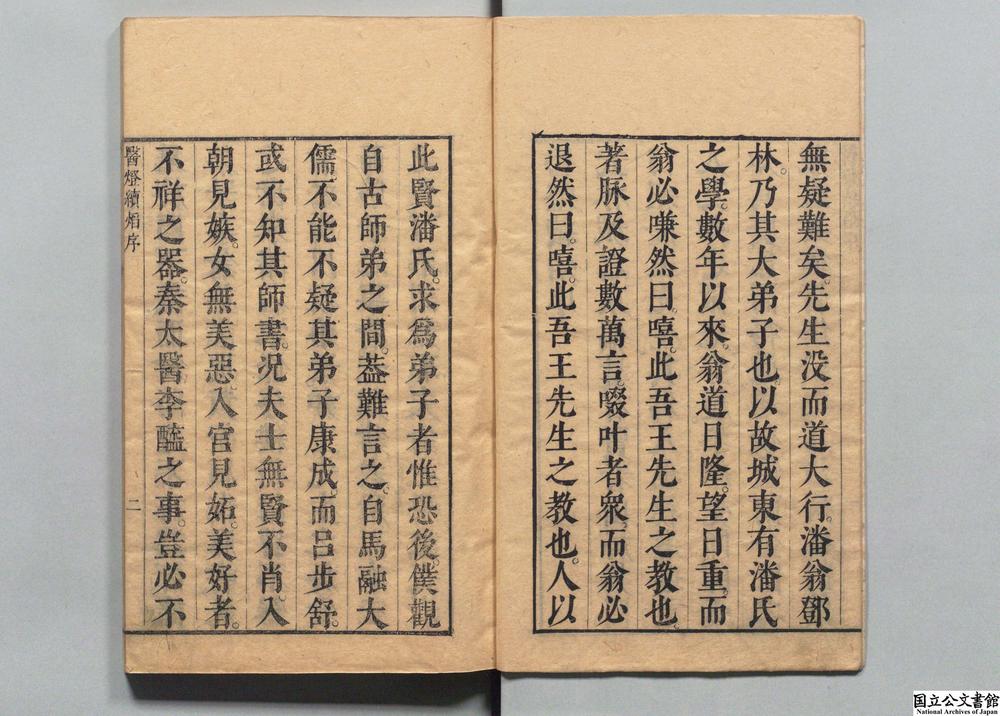 無疑難矣。先生没而道大行。潘翁鄧
林。乃其大弟子也。以故城東有潘氏
之學。數年以來。翁道日隆。望日重。而
翁必嗛然曰。嘻。此吾王先生之教也。
著脉及證數萬言。啜叶者衆。而翁必
退然曰。嘻。此吾王先生之教也。人以
此賢潘氏。求爲弟子者惟恐後。僕觀
自古師弟之間。葢難言之。自馬融大
儒。不能不疑其弟子康成。而呂步舒
或不知其師書。况夫士無賢不肖。入
朝見嫉。女無美惡。入宫見妬。美好者。
不祥之器。秦太醫李醯之事。豈必不
醫燈續焰序
二
国立公文書館
National Archives of Japan